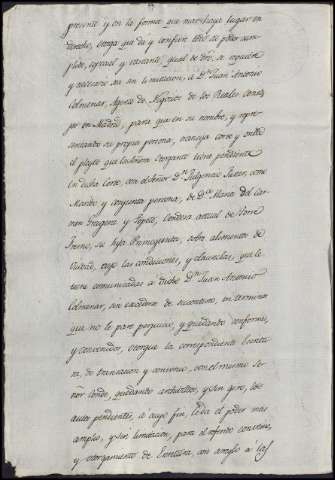 presente y en la forma que mas haya lugar en
derecho, otorga que da y confiere todo su poder cum-
plido, especial y bastante, qual de dro. se requiere
y necesario sea sin limitacion, a Dn. Juan Antonio
Colmenar, Agente de Negocios de los Reales Conse-
jos en Madrid, para que en su nombre, y repre-
sentando su propia persona, transija corte y
el pleyto que la Señora Otorgante tiene pendiente
en dicha Corte, con el Señor Dn. Fulgencio Fuster, como
Marido y conjunta persona, de Da. Maria del Car-
men Fragena y Conde actual de Torre
su hijo Primogenito, sobre alimentos de
Viudedad, bajo las condiciones, y clausulas, que le
tiene comunicadas a dicho Dn. Juan Antonio
Colmenar, sin excederse de su contexto, en terminos
que no le pare perjuicio, y quedando conformes,
y convenidos, otorgue la correspondiente Escritu-
ra, de transacion y convenio, con el mismo Se-
ñor Conde, quedando y sin giro, los
autos pendientes, a cuyo fin, le da el poder mas
amplio, y sin limitacion, para el referido convenio,
y otorgamiento de Escritura, con arreglo a las